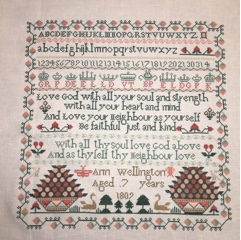 ABCDEFGHIJKLMNOPQRSTUVWXYZ
abcdefghijklmnopqrstuvwxyz
Love God with all your soul and strength
with all your heart and mind
And love your Neighbour as yourself
Be faithful just and kind
with all thy soul love God above
And as thyself thy Neighbour love
Ann Wellington
Aged 7 years
1807